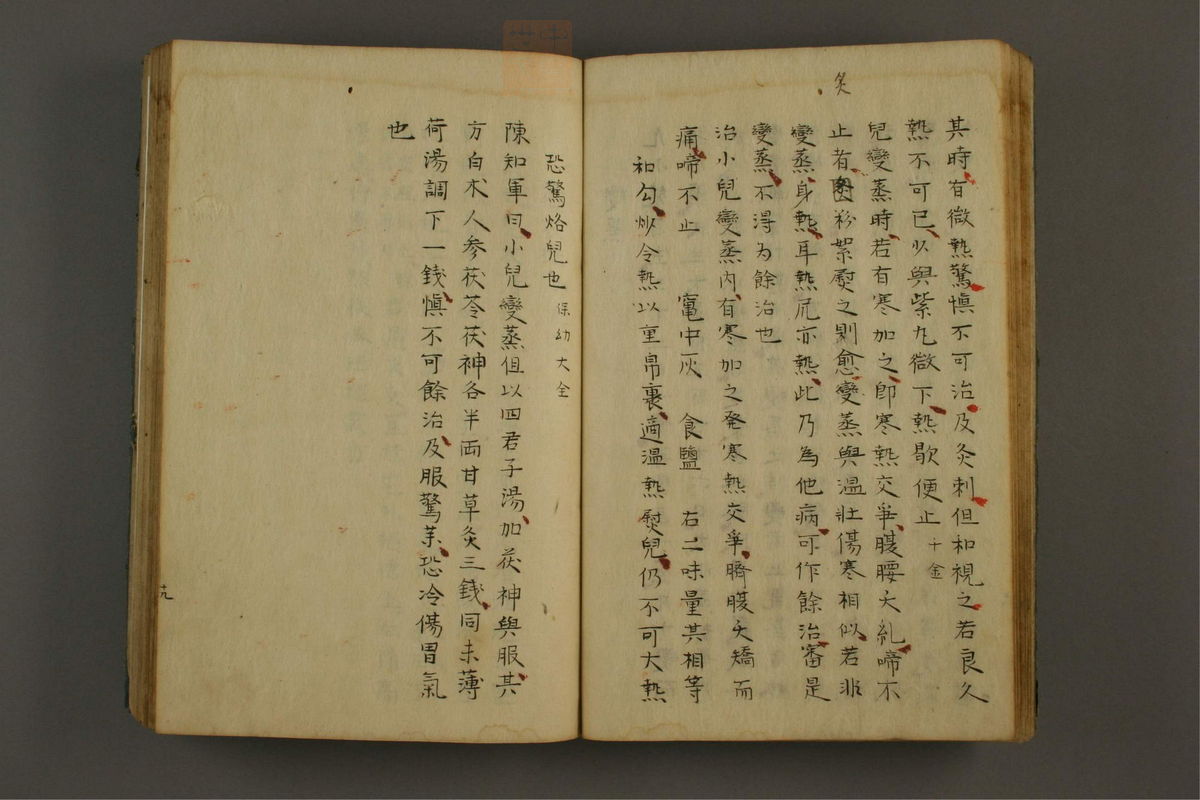 炙
其時有微熱驚慎不可治及灸刺但和視之若良久
熱不可已少與紫丸微下熱歇便止千金
兒變蒸時若有寒加之即寒熱交爭腹腰夭糺啼不
止者粉絮熨之則愈變蒸與溫壯傷寒相似若非
變蒸身熱耳熱尻亦熱此乃為他病可作餘治審是
變蒸不得為餘治也
治小兒變蒸內有寒加之発寒熱交爭臍腹夭矯而
痛啼不止 竈中灰 食鹽 右二味量其相等
和勾炒令熱以重帛裹適溫熱熨兒仍不可大熱
恐驚烙兒也保幼大全
陳知軍曰小兒變蒸但以四君子湯加茯神與服其
方白朮人参茯苓茯神各半両甘草炙三錢同末薄
荷湯調下一錢慎不可餘治及服驚藥恐冷傷胃氣
也
十九